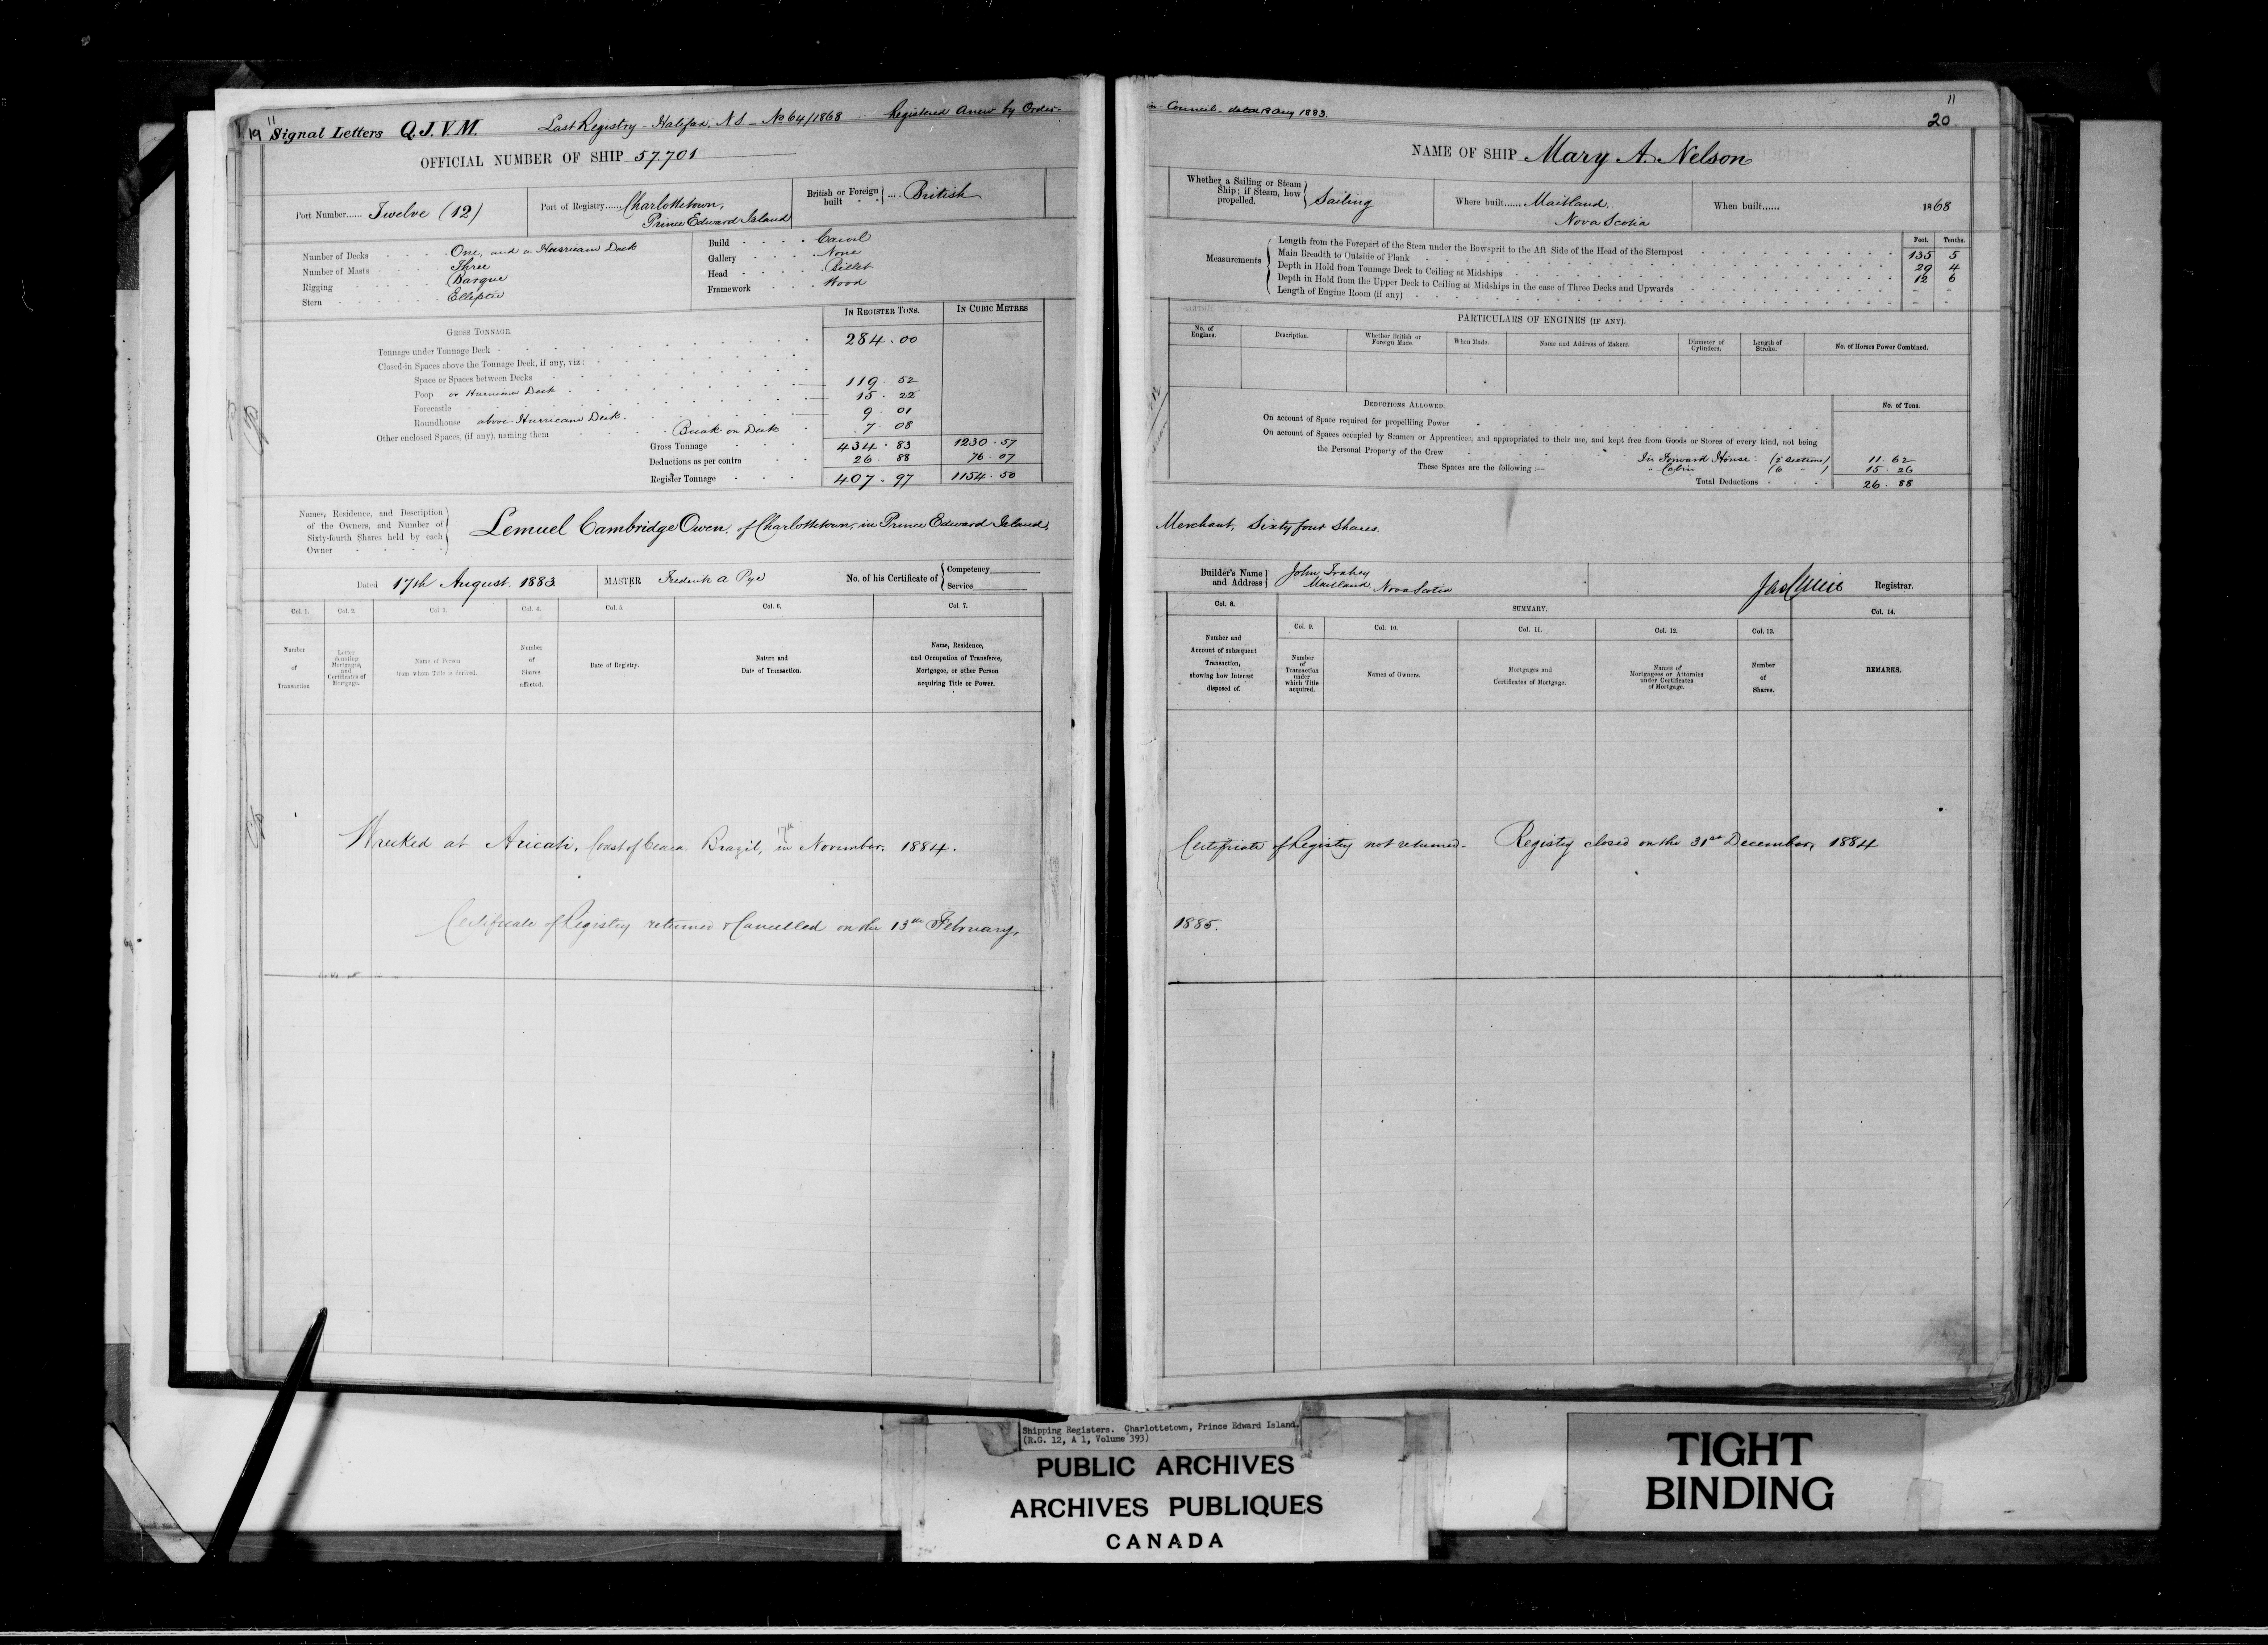 19 11 Signal Letters Q.J.V.M. Last Registry - Halifax, N.S. - No 64/1868 Registered Anew by Order
OFFICIAL NUMBER OF SHIP 57701
Port Number...... Twelve (12)
Port of Registry...... Charlottetown,
Prince Edward Island
British or Foreign built .... British
Number of Decks One, and a Hurricane Deck
Number of Masts Three
Rigging Barque
Stern Elliptic
Build Carvel
Gallery None
Head Billet
Framework Wood
IN REGISTER TONS. IN CUBIC METRES
GROSS TONNAGE.
Tonnage under Tonnage Deck 284.00
Closed-in Spaces above the Tonnage Deck, if any, viz:
Space or Spaces between Decks 119.52
Poop or Hurricane Deck 15.22
Forecastle
Roundhouse above Hurricane Deck. 9.01
Other enclosed Spaces, (if any), naming them Break on Deck 7.08
Gross Tonnage 434.83 1230.57
Deductions as per contra 26.88 76.07
Register Tonnage 407.97 1154.50
Names, Residence, and Description
of the Owners, and Number of
Sixty-fourth Shares held by each
Owner
Lemuel Cambridge Owen, of Charlottetown, in Prince Edward Island,
Dated 17th August. 1883
MASTER Frederick A Pye
No. of his Certificate of Competency
Service
Col. 1. Col. 2. Col. 3. Col. 4. Col. 5. Col. 6. Col. 7.
Number of Transaction
Letter denoting Mortgages, and Certificates of Mortgage.
Name of Person from whom Title is derived.
Number of Shares affected.
Date of Registry.
Nature and Date of Transaction.
Name, Residence, and Occupation of Transferee, Mortgagee, or other Person acquiring Title or Power.
Wrecked at Aricati, Coast of Ceara Brazil, in 17th November, 1884.
Certificate of Registry returned & Cancelled on the 13th February,
in Council - dated 13 Aug 1883.
11
20
NAME OF SHIP Mary A. Nelson
Whether a Sailing or Steam Ship; if Steam, how propelled. Sailing
Where built...... Maitland,
Nova Scotia
When built...... 1868
Measurements
Feet. Tenths.
Length from the Forepart of the Stem under the Bowsprit to the Aft Side of the Head of the Sternpost 135 5
Main Breadth to Outside of Plank 29 4
Depth in Hold from Tonnage Deck to Ceiling at Midships 12 6
Depth in Hold from the Upper Deck to Ceiling at Midships in the case of Three Decks and Upwards - -
Length of Engine Room (if any) - -
PARTICULARS OF ENGINES (IF ANY).
No. of Engines. Description. Whether British or Foreign Made. When Made. Name and Address of Makers. Diameter of Cylinders. Length of Stroke. No. of Horses Power Combined.
DEDUCTIONS ALLOWED. No. of Tons.
On account of Space required for propelling Power
On account of Spaces occupied by Seamen or Apprentices, and appropriated to their use, and kept free from Goods or Stores of every kind, not being
the Personal Property of the Crew In Forward House: (2 Sections) 11.62
These Spaces are the following :— " Cabin (6 " ) 15.26
Total Deductions 26.88
Merchant, Sixty four Shares.
Builder's Name and Address John Trahey
Maitland, Nova Scotia
Registrar.
Col. 8. SUMMARY. Col. 14.
Col. 9. Col. 10. Col. 11. Col. 12. Col. 13.
Number and Account of subsequent Transaction, showing how Interest disposed of.
Number of Transaction under which Title acquired.
Names of Owners.
Mortgages and Certificates of Mortgage.
Names of Mortgagees or Attornies under Certificates of Mortgage.
Number of Shares.
REMARKS.
Certificate of Registry not returned. Registry closed on the 31st December, 1884
1885.
Shipping Registers. Charlottetown, Prince Edward Island.
(R.G. 12, A 1, Volume 393)
PUBLIC ARCHIVES
ARCHIVES PUBLIQUES
CANADA
TIGHT
BINDING